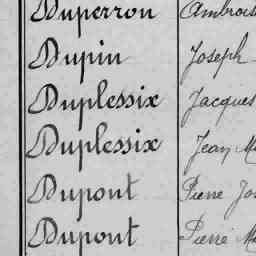 Duperron Ambrois
Dupin Joseph
Duplessix Jacques
Duplessix Jean
Dupont Pierre Jos
Dupont Pierre